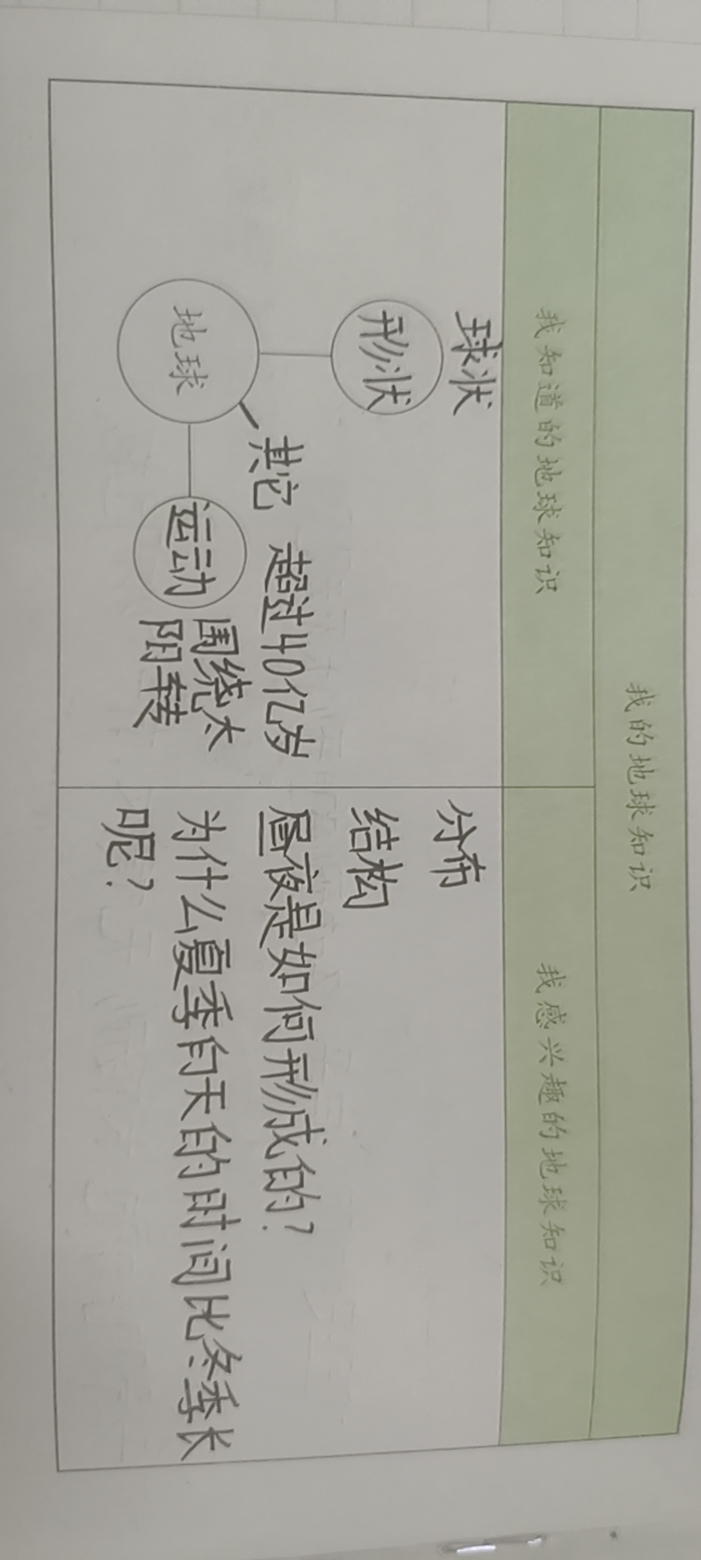 我的地球知识
我知道的地球知识
我感兴趣的地球知识
球状
形状
地球
其它 超过40亿岁
运动
围绕太
阳转
分布
结构
昼夜是如何形成的?
为什么夏季白天的时间比冬季长
呢?